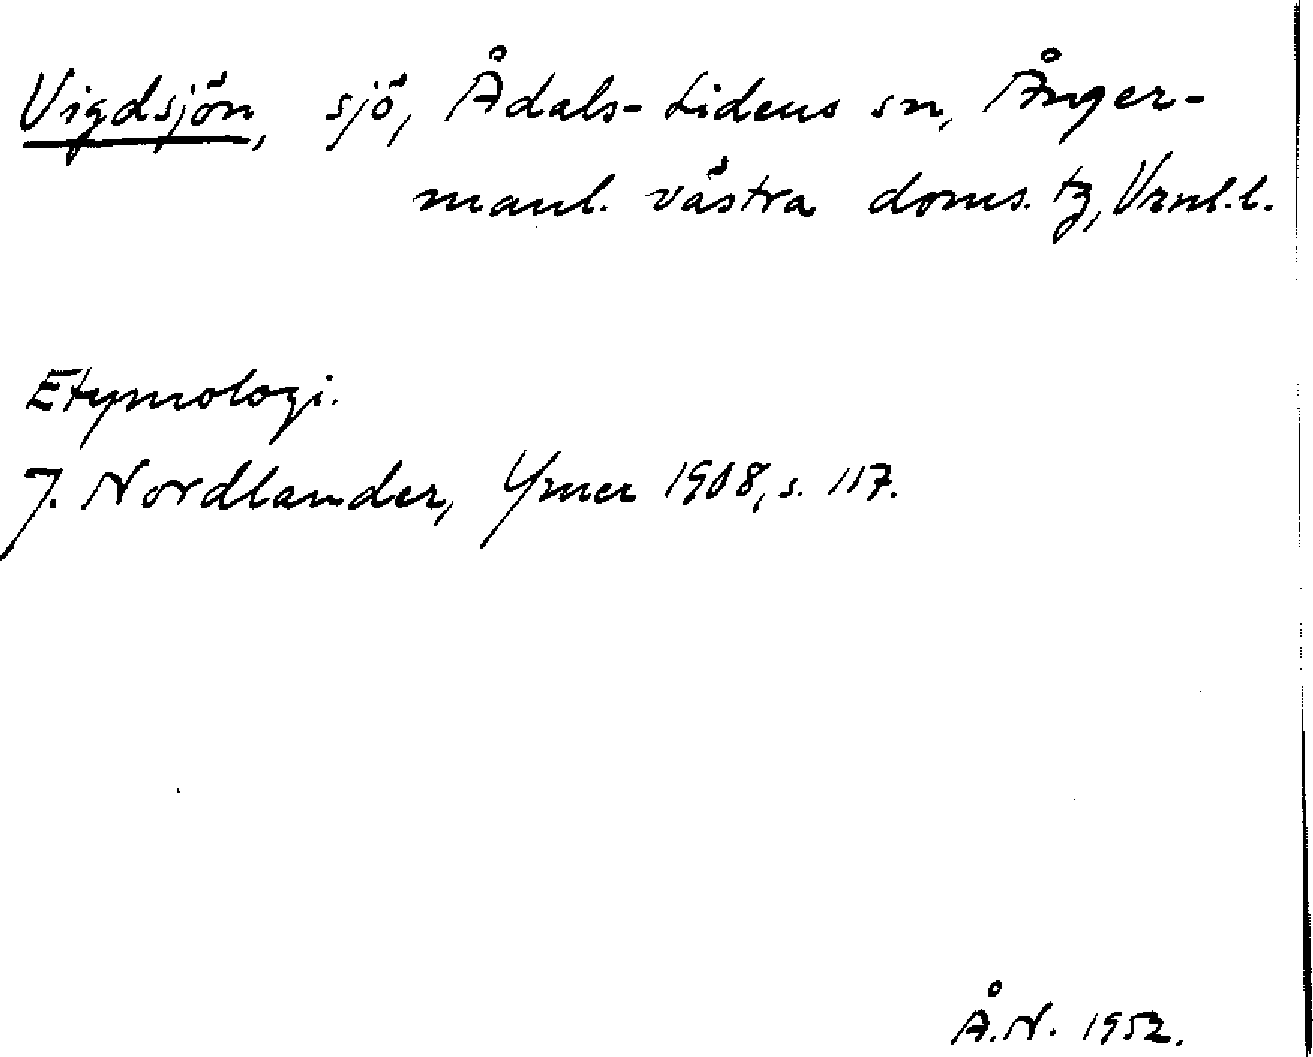 Vigdsjön, sjö, Ådals-Lidens sn, Ånger-
manl. västra doms. tg, Vrnl.l.
Etymologi.
J. Nordlander, Ymer 1908, s. 117.
Å.N. 1952.